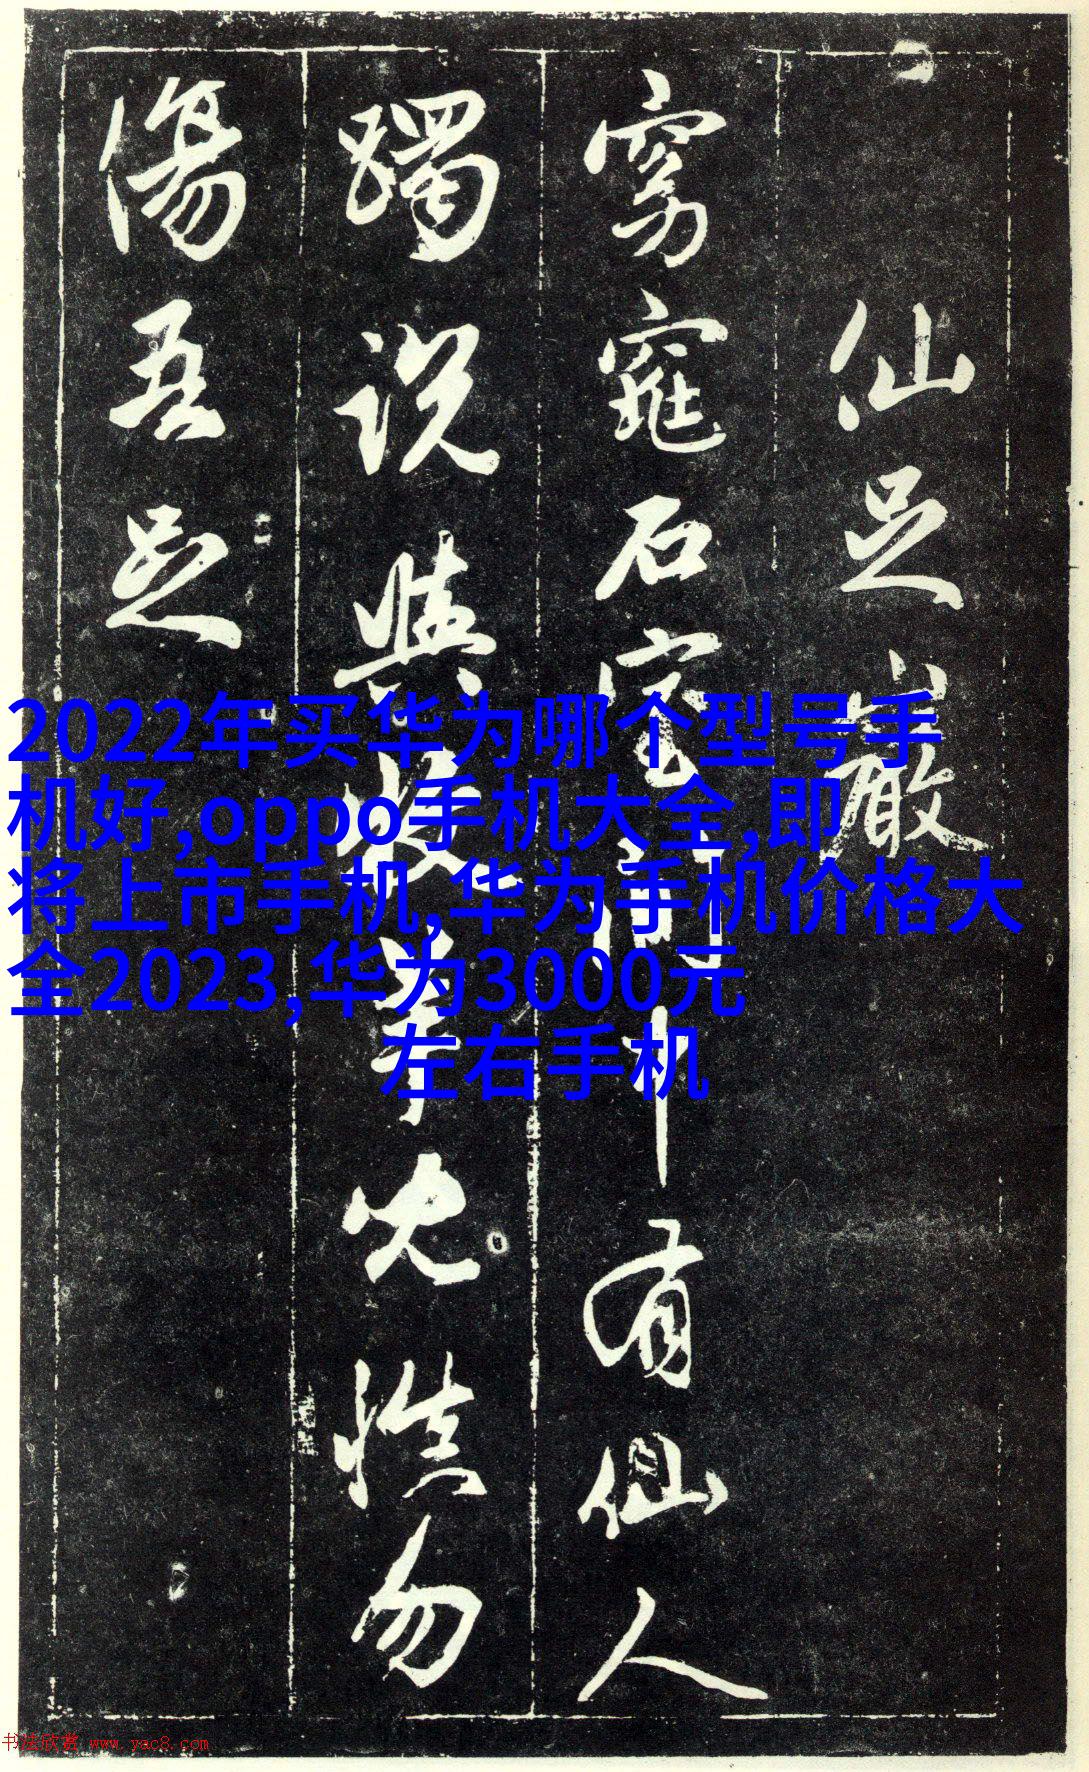 仙足巖
窈窕石室間
中有仙人
躅說與牧羊兒慎勿
傷吾足
2022年买华为哪个型号手
机好,oppo手机大全,即
将上市手机,华为手机价格大
全2023,华为3000元
左右手机
书法欣赏 www.yac8.com